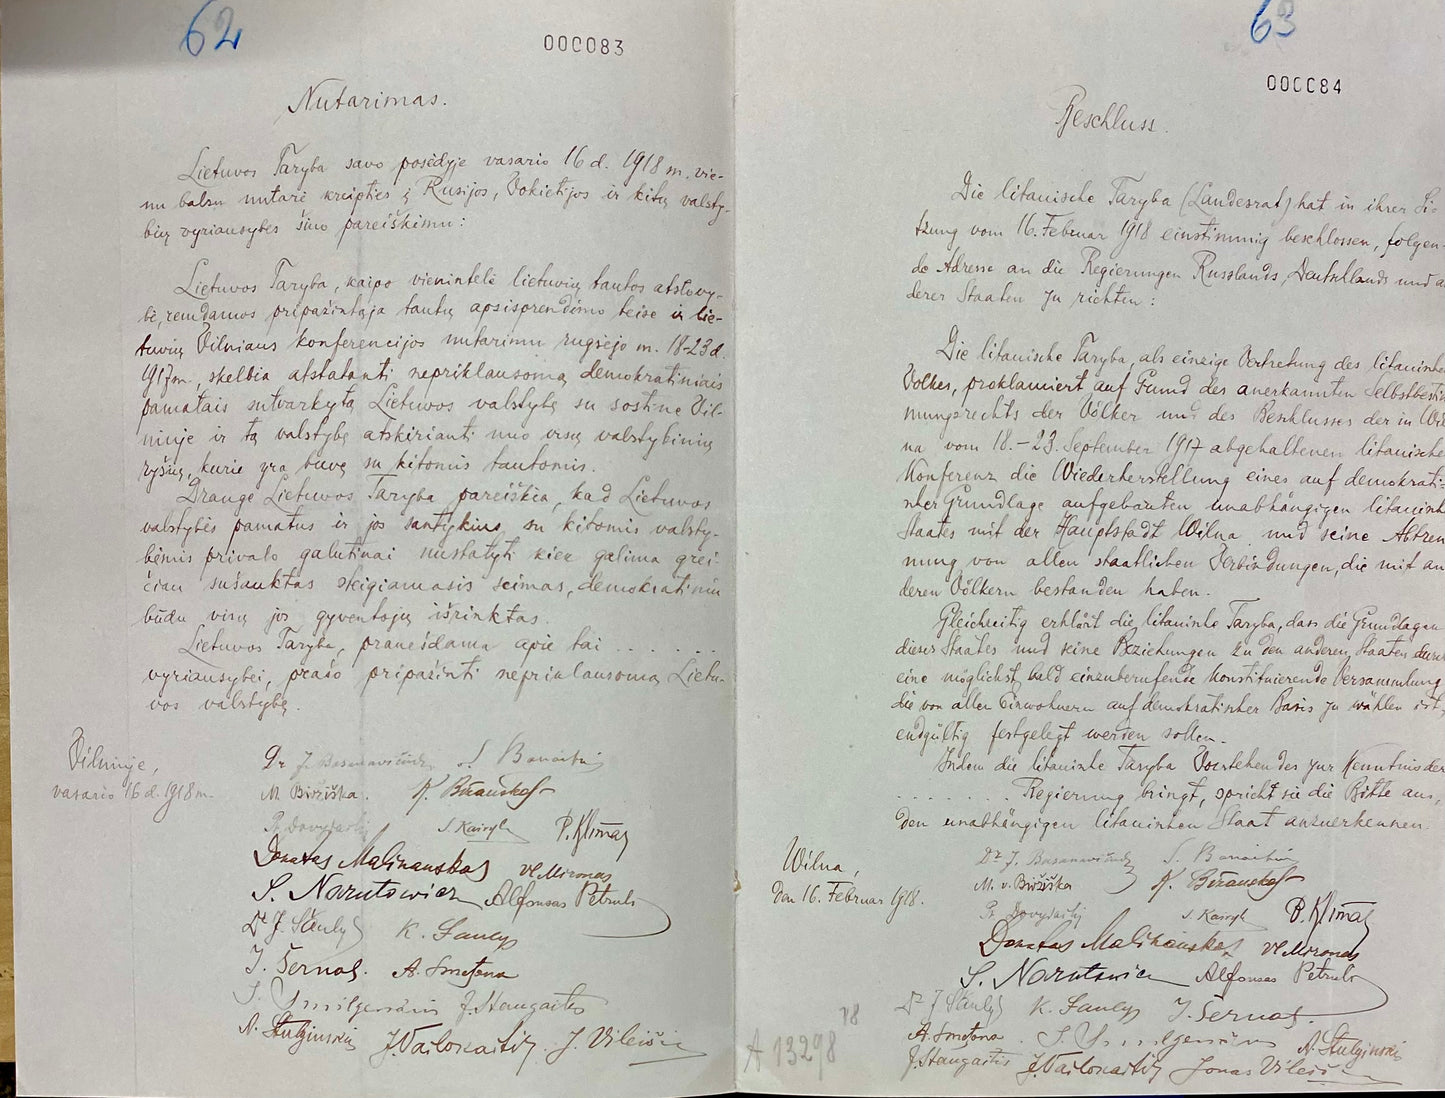 62
000083
Nutarimas.
Lietuvos Taryba savo posėdyje vasario 16 d. 1918 m. vie-
nu balsu nutarė kreipties į Rusijos, Vokietijos ir kitų valsty-
bių vyriausybes šiuo pareiškimu:
Lietuvos Taryba, kaipo vienintelė lietuvių tautos atstovy-
bė, remdamos pripažintąja tautų apsisprendimo teise ir lie-
tuvių Vilniaus konferencijos nutarimu rugsėjo m. 18-23 d.
1917 m., skelbia atstatanti nepriklausomą demokratiniais
pamatais sutvarkytą Lietuvos valstybę su sostine Vil-
niuje ir tą valstybę atskirianti nuo visų valstybinių
ryšių, kurie yra buvę su kitomis tautomis.
Drauge Lietuvos Taryba pareiškia, kad Lietuvos
valstybės pamatus ir jos santykius su kitomis valsty-
bėmis privalo galutinai nustatyti kiek galima grei-
čiau sušauktas steigiamasis seimas, demokratiniu
būdu visų jos gyventojų išrinktas.
Lietuvos Taryba, pranešdama apie tai . . . . . .
vyriausybei, prašo pripažinti nepriklausomą Lietu-
vos valstybę.
Vilniuje,
vasario 16 d. 1918 m.
Dr J. Basanavičius S. Banaitis
M. Biržiška. K. Bizauskas
Pr. Dovydaitis S. Kairys P. Klimas
Donatas Malinauskas Vl. Mironas
S. Narutowicz Alfonsas Petrulis
Dr J. Šaulys K. Šaulys
J. Šernas. A. Smetona
J. Smilgevičius J. Staugaitis
A. Stulginskis J. Vailokaitis. J. Vileišis
63
000084
Beschluss.
Die litauische Taryba (Landesrat) hat in ihrer Si-
tzung vom 16. Februar 1918 einstimmig beschlossen, folgen-
de Adresse an die Regierungen Russlands, Deutschlands und a
derer Staaten zu richten:
Die litauische Taryba, als einzige Vertretung des litauische
Volkes, proklamiert auf Grund des anerkannten Selbstbestim
mungsrechts der Völker und des Beschlusses der in Wil
na vom 18.-23. September 1917 abgehaltenen litauische
Konferenz die Wiederherstellung eines auf demokrati-
scher Grundlage aufgebauten unabhängigen litauisch
Staates mit der Hauptstadt Wilna und seine Abtren
nung von allen staatlichen Verbindungen, die mit an
deren Völkern bestanden haben.
Gleichzeitig erklärt die litauische Taryba, dass die Grundlagen
dieses Staates und seine Beziehungen zu den anderen Staaten durch
eine möglichst bald einzuberufende konstituierende Versammlung
die von allen Einwohnern auf demokratischer Basis zu wählen ist,
endgültig festgelegt werden sollen.
Indem die litauische Taryba Vorstehendes zur Kenntnis der
. . . . . . . . Regierung bringt, spricht sie die Bitte aus,
den unabhängigen litauischen Staat anzuerkennen.
Wilna,
den 16. Februar 1918.
Dr J. Basanavičius S. Banaitis
M. v. Biržiška K. Bizauskas
Pr. Dovydaitis S. Kairys P. Klimas
Donatas Malinauskas Vl. Mironas
S. Narutowicz Alfonsas Petrulis
Dr J. Šaulys K. Šaulys J. Šernas.
A. Smetona J. Smilgevičius A. Stulginskis
J. Staugaitis J. Vailokaitis Jonas Vileišis
18
A 13298